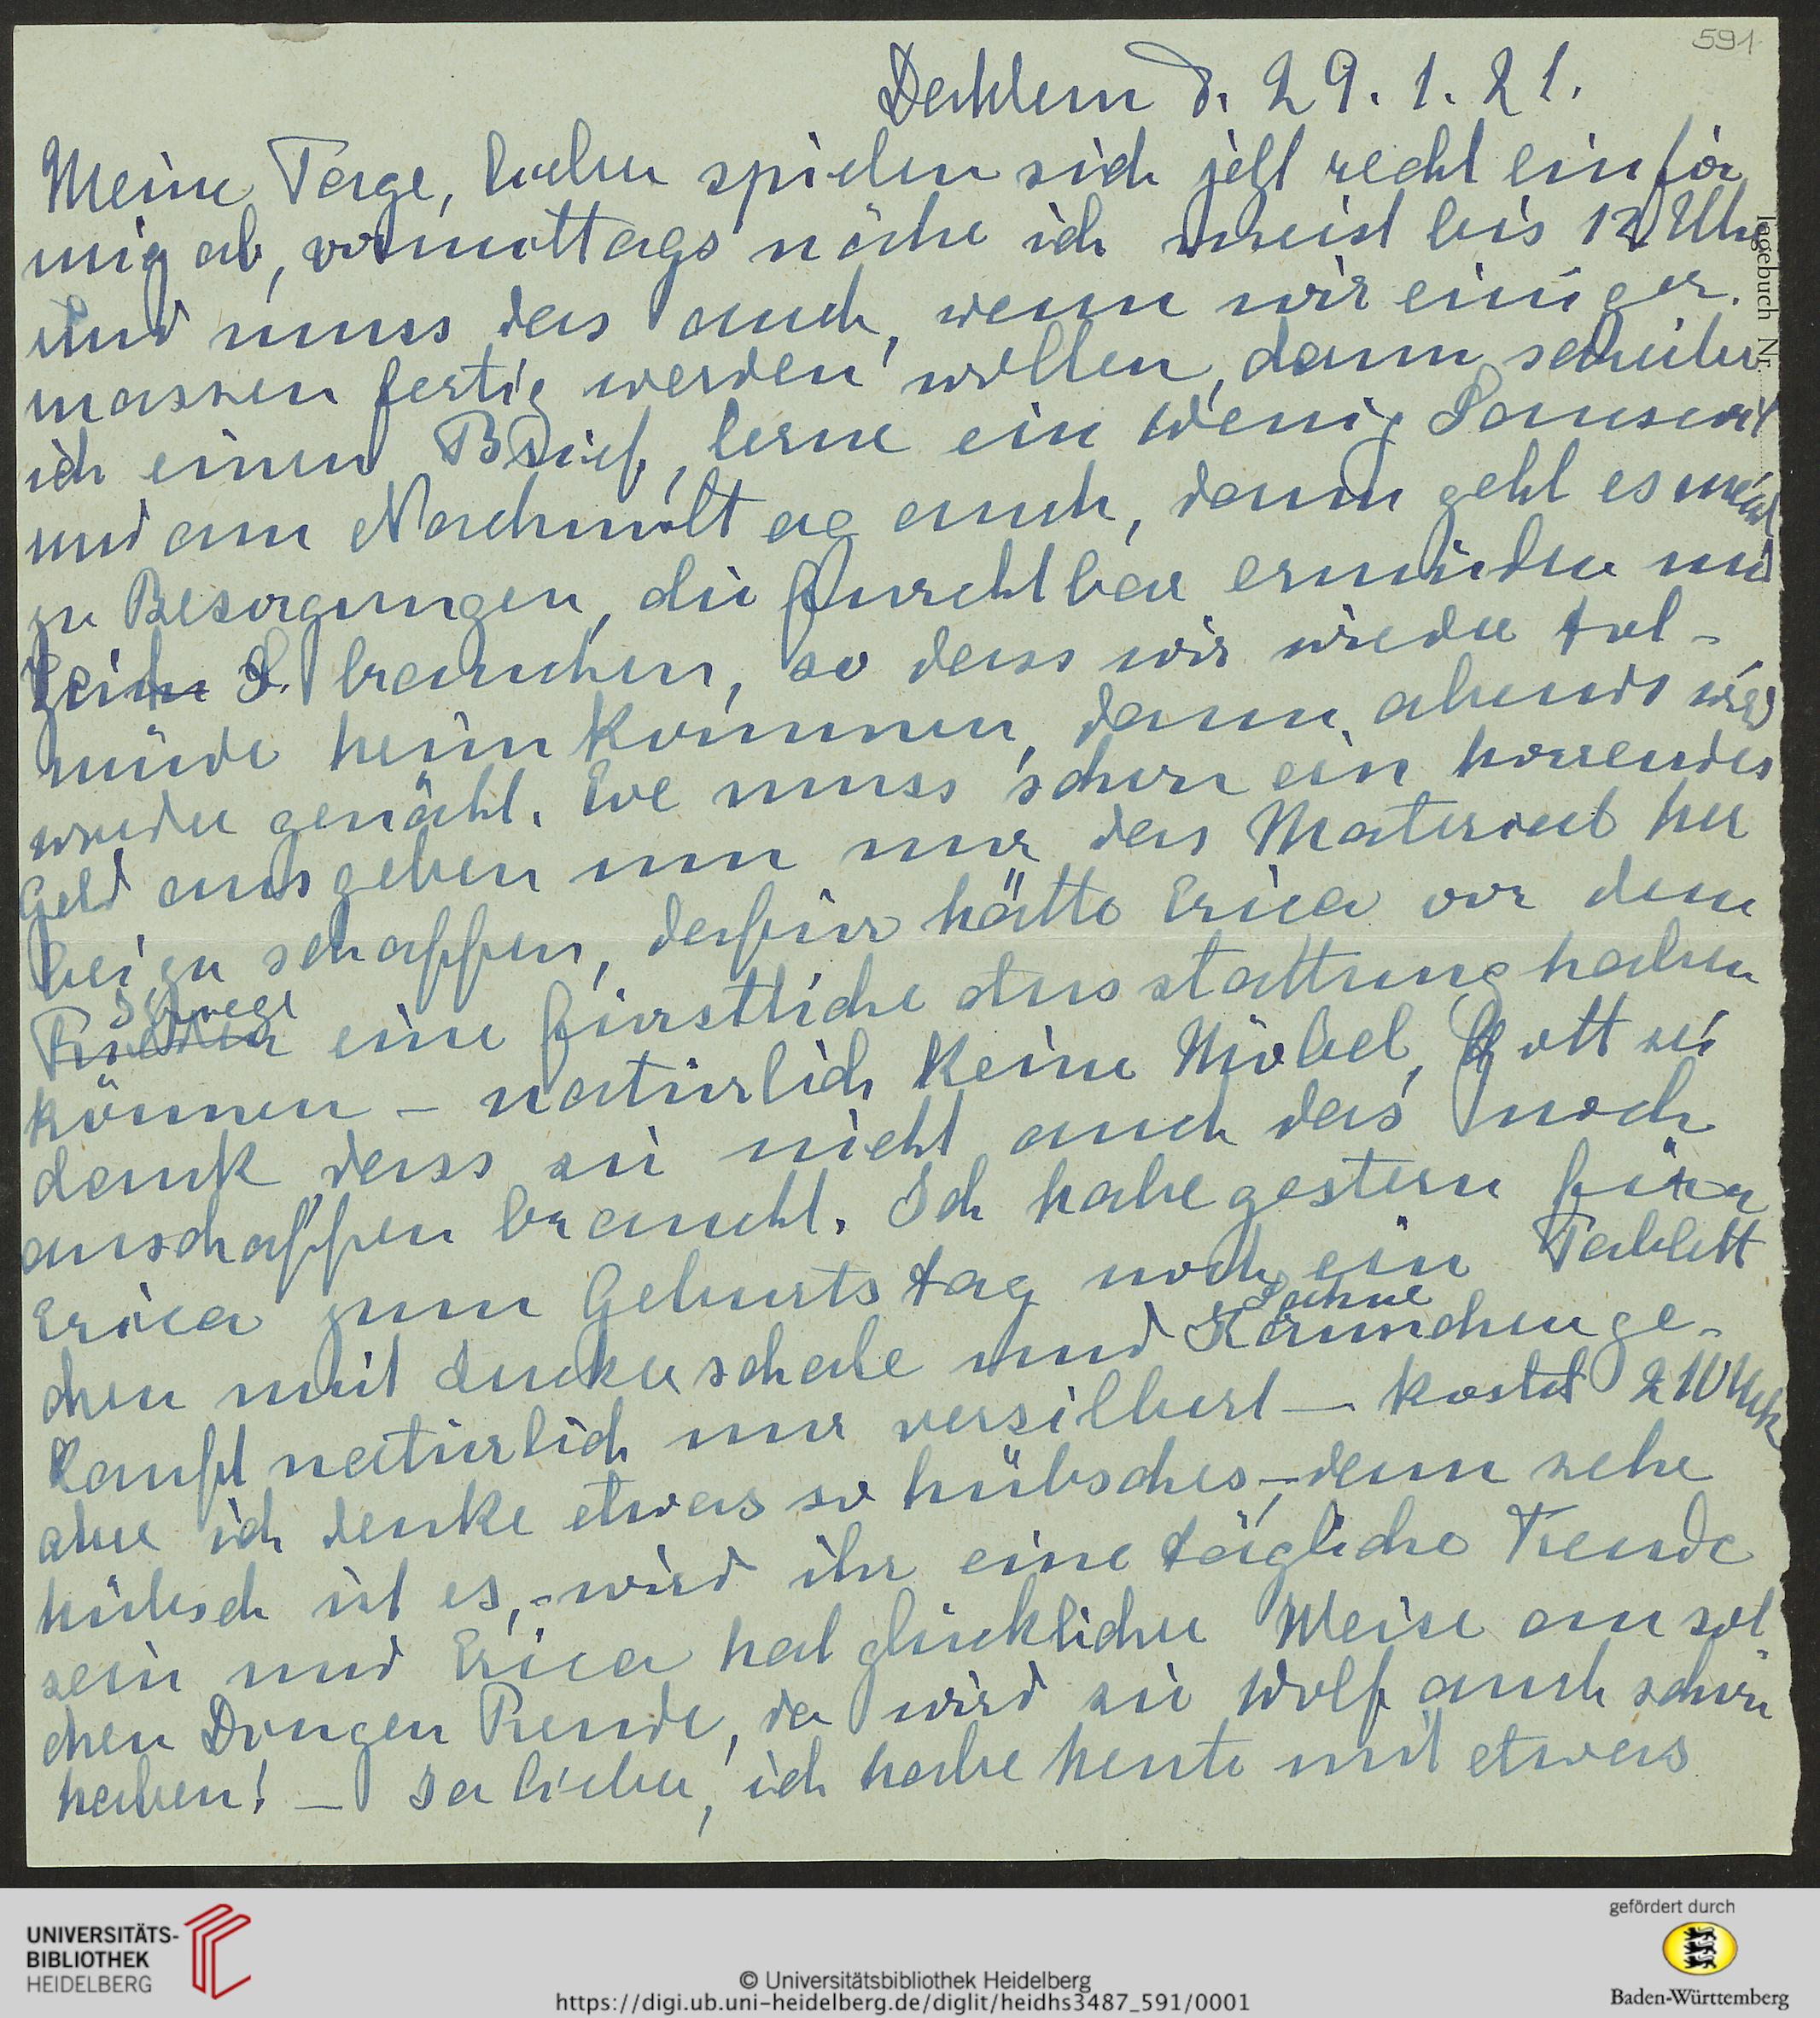 591
Dahlem d. 29.1.21.
Meine Tage, lieber spielen sich jetzt recht einför
mig ab, vormittags nähe ich meist bis 12 Uhr
und muss das auch, wenn wir einiger.
massen fertig werden wollen, dann schreibe
ich einen Brief, lerne ein wenig Sanscrit
und am Nachmittag auch, dann geht es meist
zu Besorgungen, die furchtbar ermüden und
Zeit brauchen, so dass wir wieder tot-
müde heim kommen, dann abends wird
wieder genäht. Eve muss schon ein horrendes
Geld ausgeben um nur das Material her
beizu schaffen, dafür hätte Erica vor dem
Kriege
eine fürstliche Ausstattung haben
können – natürlich keine Möbel, Gott sei
dank, dass sie nicht auch das noch
anschaffen braucht. Ich habe gestern für
Erica zum Geburtstag noch ein Tablett
Sahne
chen mit Zuckerschale und Kännchen ge-
kauft natürlich nur versilbert – kostet 210 Mk
aber ich denke etwas so hübsches, – denn sehr
hübsch ist es, – wird ihr eine tägliche Freude
sein und Erica hat glücklicher Weise an sol
chen Dingen Freude, da wird sie Wolf auch schon
haben! – Ja lieber, ich habe heute mit etwas
Tagebuch Nr.
UNIVERSITÄTS-
BIBLIOTHEK
HEIDELBERG
© Universitätsbibliothek Heidelberg
https://digi.ub.uni-heidelberg.de/diglit/heidhs3487_591/0001
gefördert durch
Baden-Württemberg